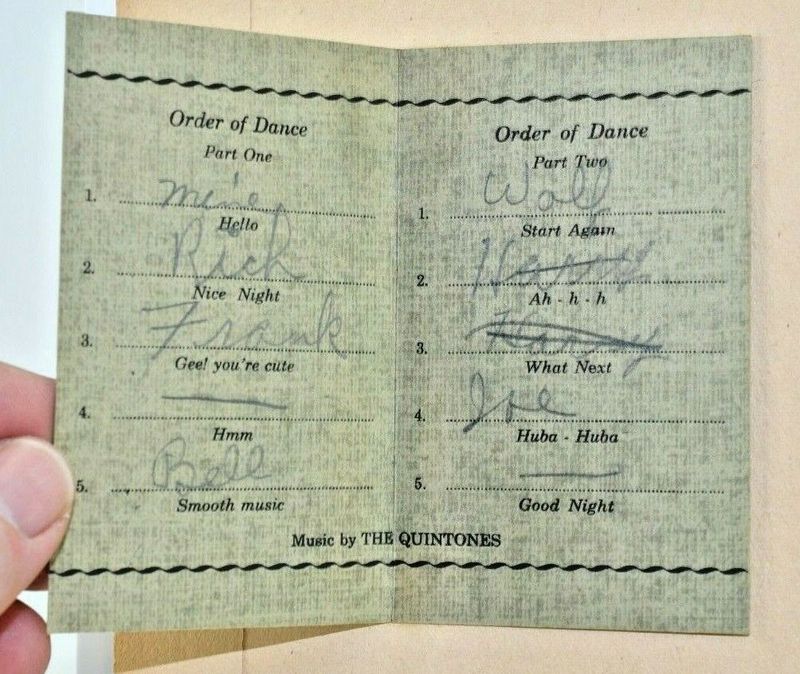 Order of Dance
Part One
1. Mine
Hello
2. Rich
Nice Night
3. Frank
Gee! you're cute
4.
Hmm
5. Bill
Smooth music
Order of Dance
Part Two
1. Wolf
Start Again
2. Harry
Ah - h - h
3. Harry
What Next
4. Joe
Huba - Huba
5.
Good Night
Music by THE QUINTONES